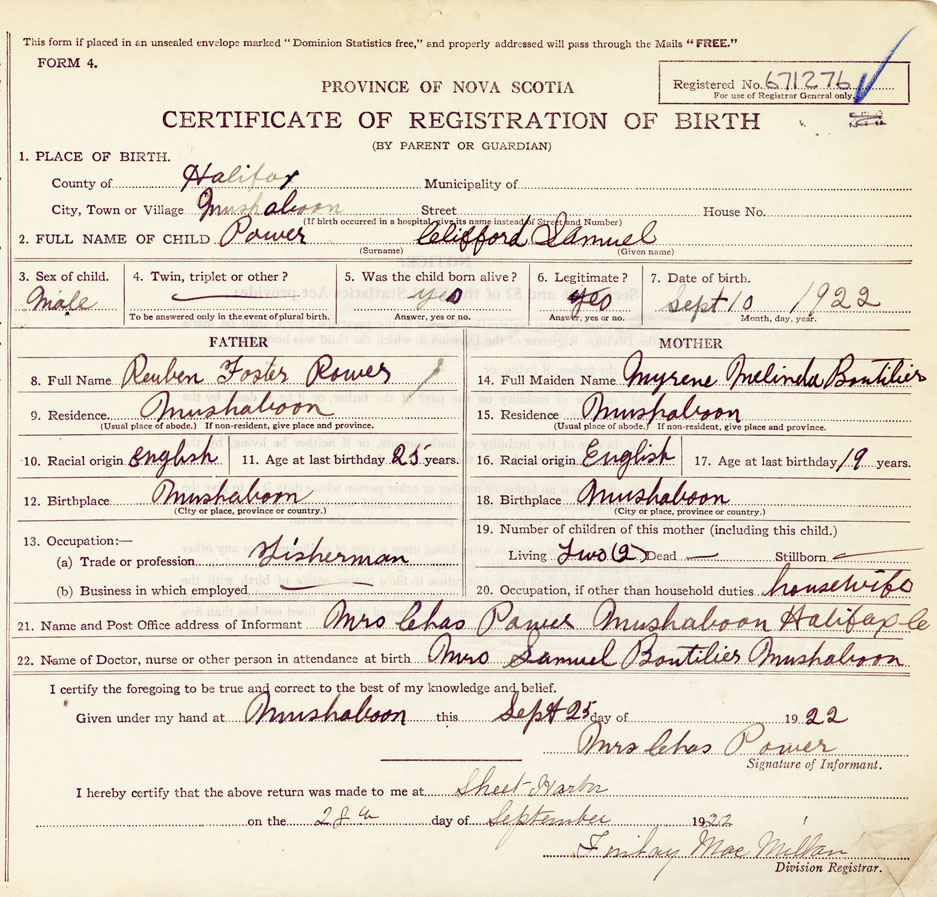 This form if placed in an unsealed envelope marked "Dominion Statistics free," and properly addressed will pass through the Mails "FREE."
FORM 4.
Registered No. 671276
For use of Registrar General only
PROVINCE OF NOVA SCOTIA
CERTIFICATE OF REGISTRATION OF BIRTH
(BY PARENT OR GUARDIAN)
1. PLACE OF BIRTH.
County of Halifax Municipality of
City, Town or Village Mushaboon Street House No.
(If birth occurred in a hospital, give its name instead of Street and Number)
2. FULL NAME OF CHILD Power Clifford Samuel
(Surname) (Given name)
3. Sex of child. 4. Twin, triplet or other? 5. Was the child born alive? 6. Legitimate? 7. Date of birth.
Male yes yes Sept 10 1922
To be answered only in the event of plural birth. Answer, yes or no. Answer, yes or no. Month, day, year.
FATHER MOTHER
8. Full Name Reuben Foster Power 14. Full Maiden Name Myrene Melinda Boutilier
9. Residence Mushaboon 15. Residence Mushaboon
(Usual place of abode.) If non-resident, give place and province. (Usual place of abode.) If non-resident, give place and province.
10. Racial origin English 11. Age at last birthday 25 years. 16. Racial origin English 17. Age at last birthday 19 years.
12. Birthplace Mushaboon 18. Birthplace Mushaboon
(City or place, province or country.) (City or place, province or country.)
13. Occupation:— 19. Number of children of this mother (including this child.)
(a) Trade or profession Fisherman Living Two (2) Dead — Stillborn —
(b) Business in which employed — 20. Occupation, if other than household duties housewife
21. Name and Post Office address of Informant Mrs Chas Power Mushaboon Halifax Co
22. Name of Doctor, nurse or other person in attendance at birth Mrs Samuel Boutilier Mushaboon
I certify the foregoing to be true and correct to the best of my knowledge and belief.
Given under my hand at Mushaboon this Sept 25 day of 1922
Mrs Chas Power
Signature of Informant.
I hereby certify that the above return was made to me at Sheet Harbor
on the 28th day of September 1922
Finlay MacMillan
Division Registrar.